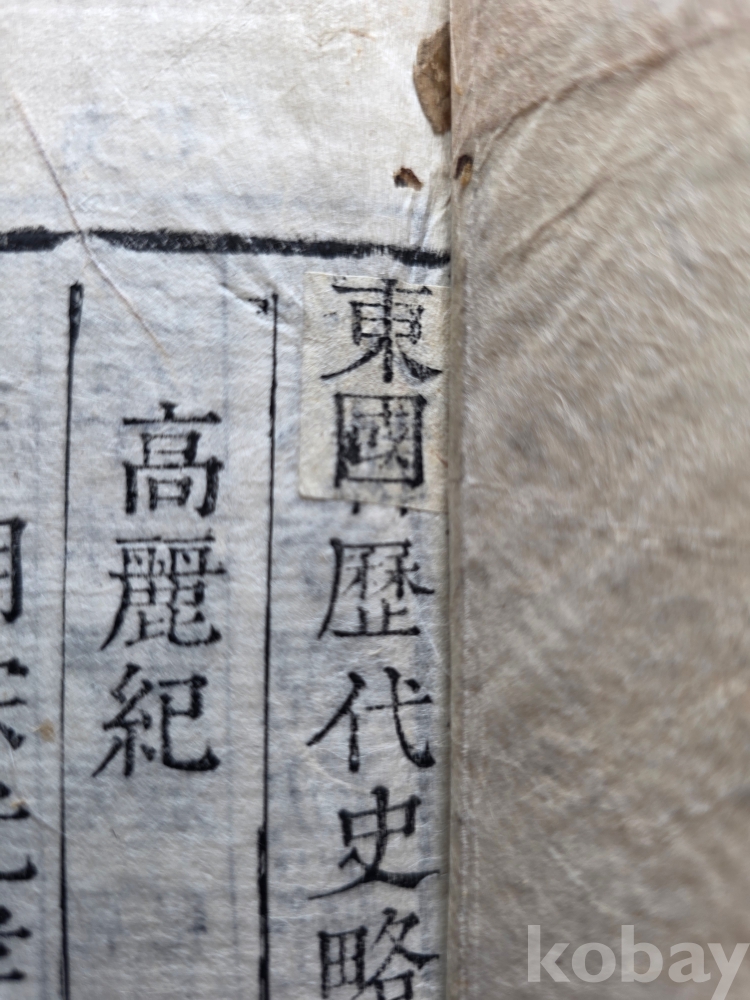 東國歷代史略
高麗紀
kobay